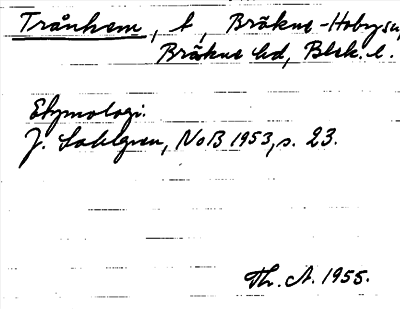 Trånhem, t, Bräkne-Hoby sn,
Bräkne hd, Blek. l.
Etymologi.
J. Sahlgren, NoB 1953, s. 23.
Th. A. 1955.